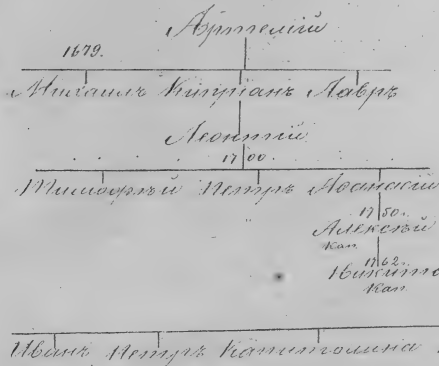 Артемій
1679.
Михаилъ Кипріанъ Лавръ
Леонтій
1700.
Тимофѣй Петръ Афанасій
1750.
Алексѣй
Кап.
1762.
Никита
Кап.
Иванъ Петръ Капитолина